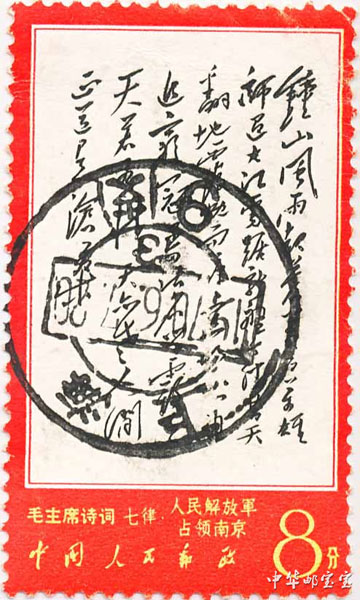 鐘山風雨起蒼黃百萬雄
師過大江虎踞龍盤今勝昔天
翻地覆慨而慷宜將剩勇
追窮寇不可沽名學霸王
天若有情天亦老人間
正道是滄桑
毛主席诗词 七律 人民解放軍
占领南京
中国人民邮政
8分
中华邮宝宝